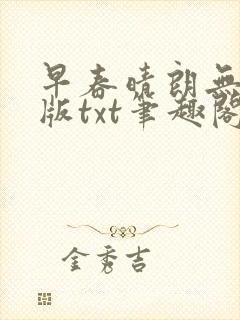 早春晴朗无
版txt笔趣阁
金秀吉